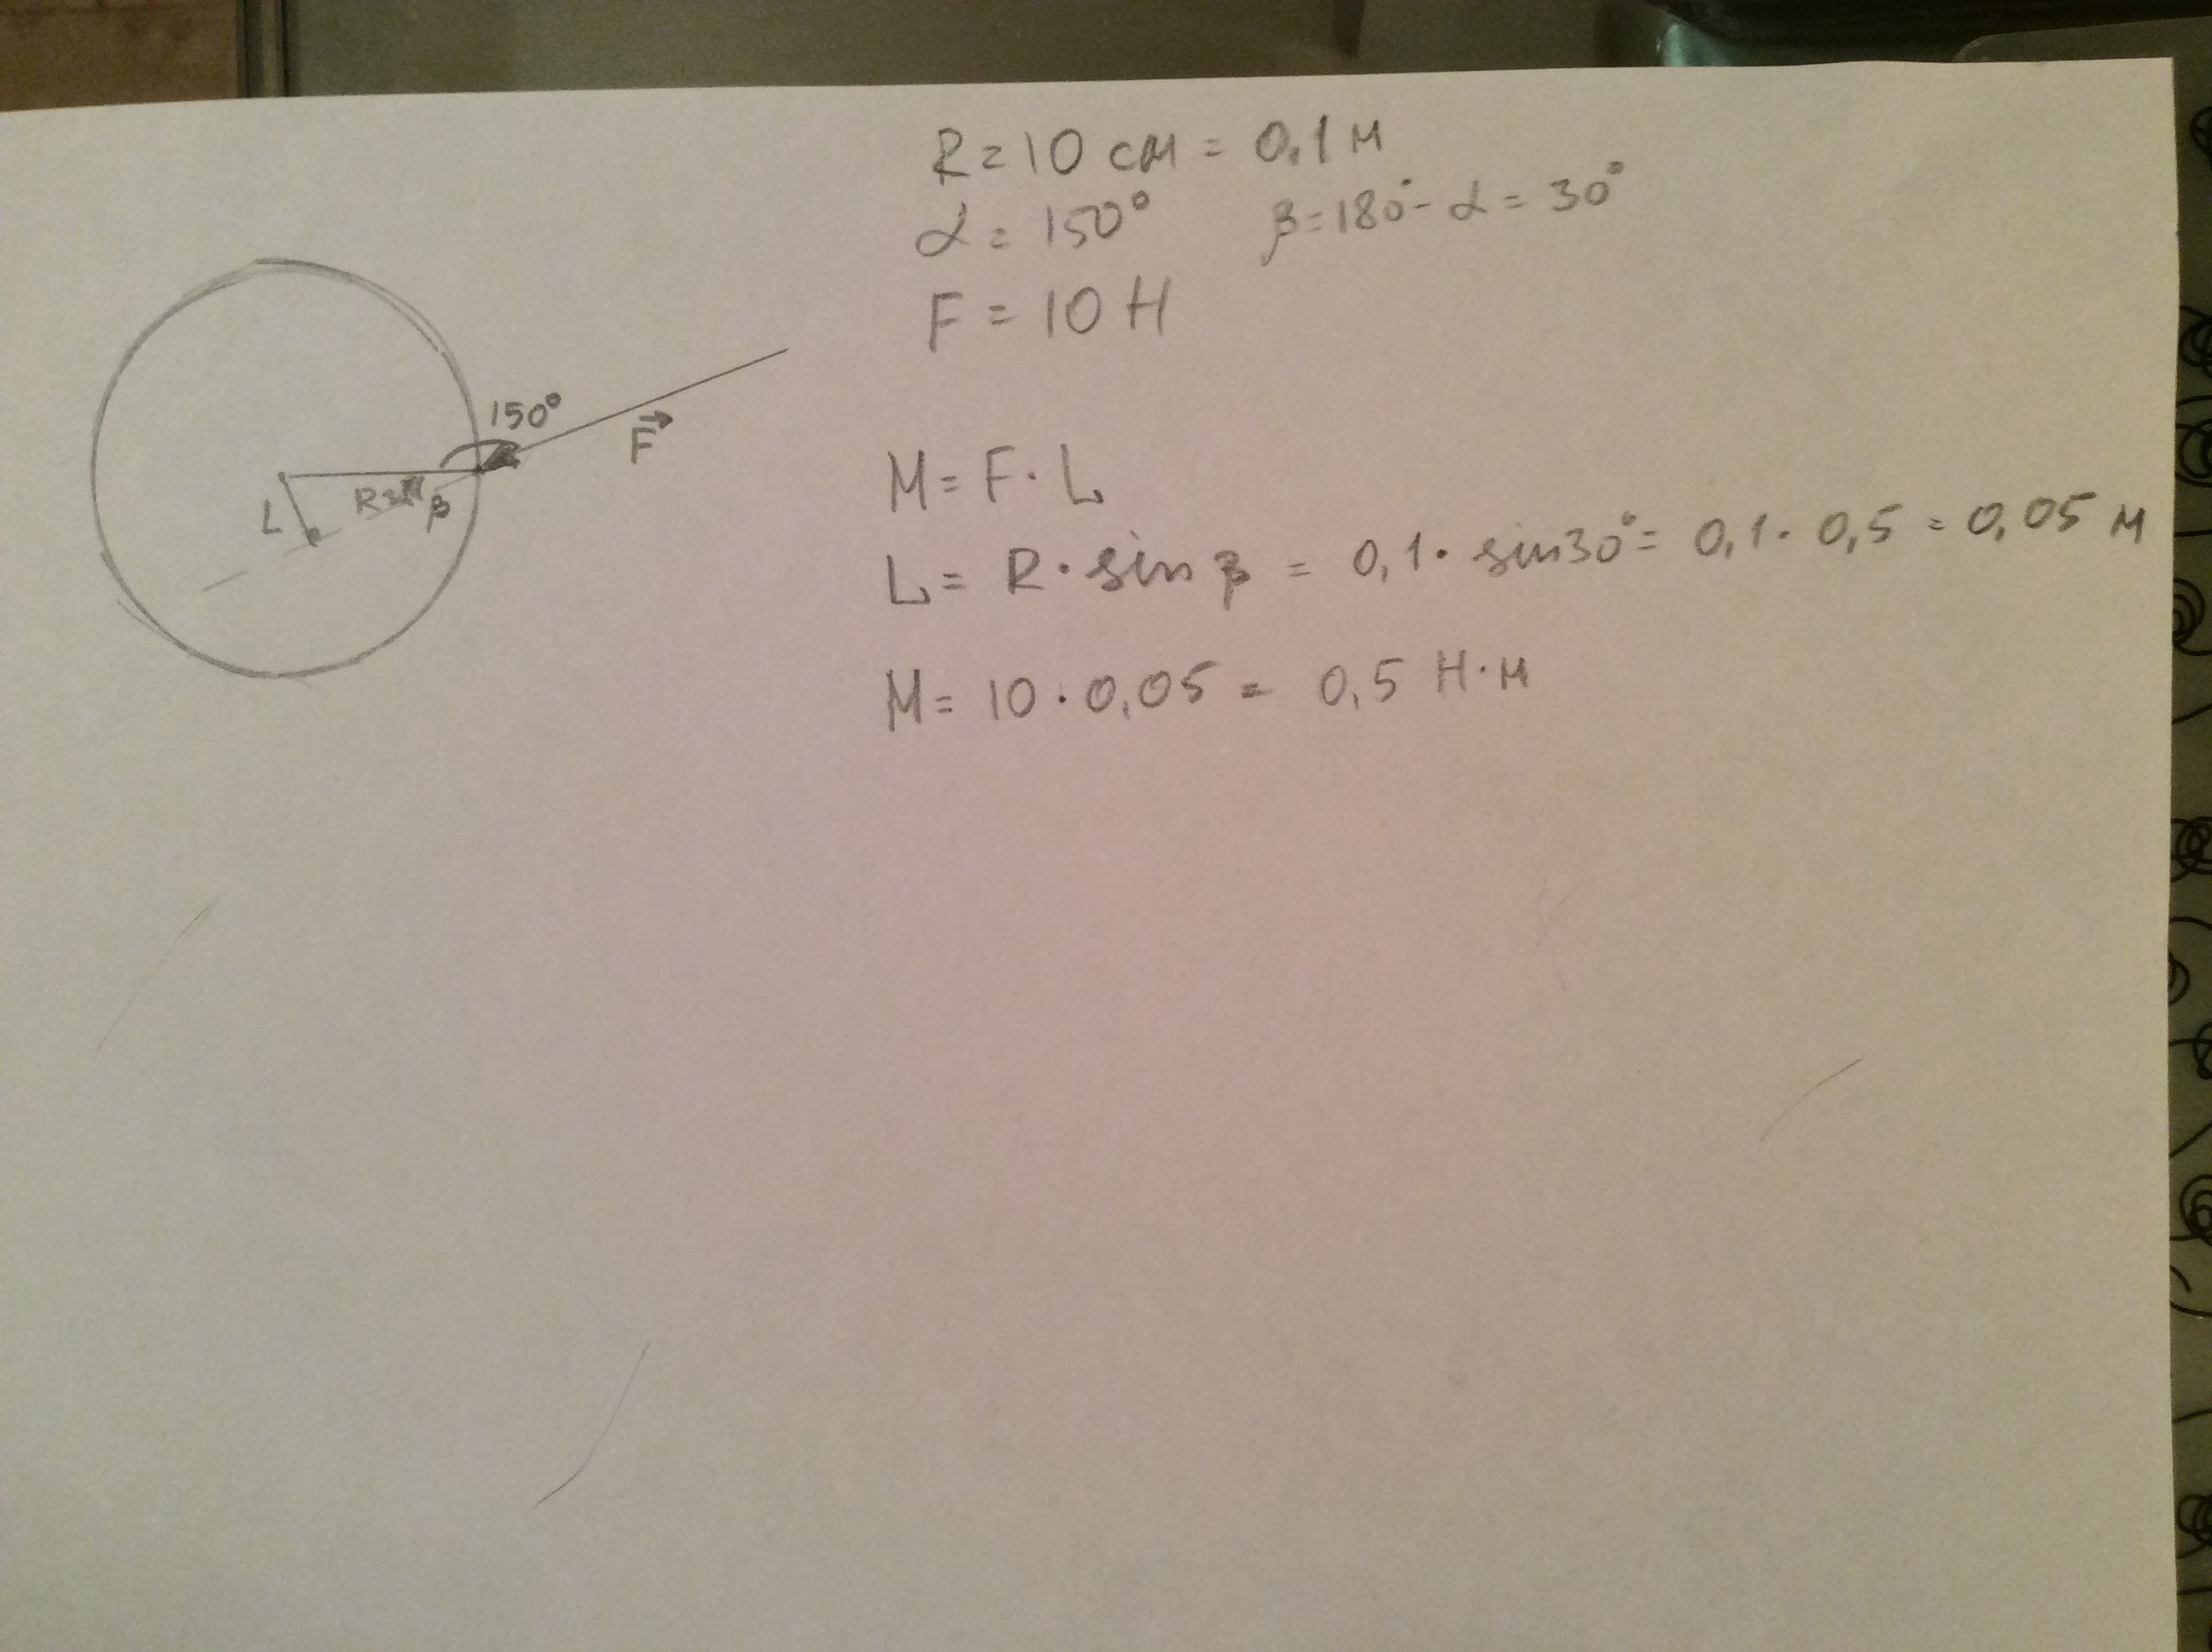 R = 10 см = 0,1 м
α = 150° β = 180° - α = 30°
F = 10 Н
150°
F⃗
L
R
β
M = F · L
L = R · sin β = 0,1 · sin 30° = 0,1 · 0,5 = 0,05 м
M = 10 · 0,05 = 0,5 Н·м